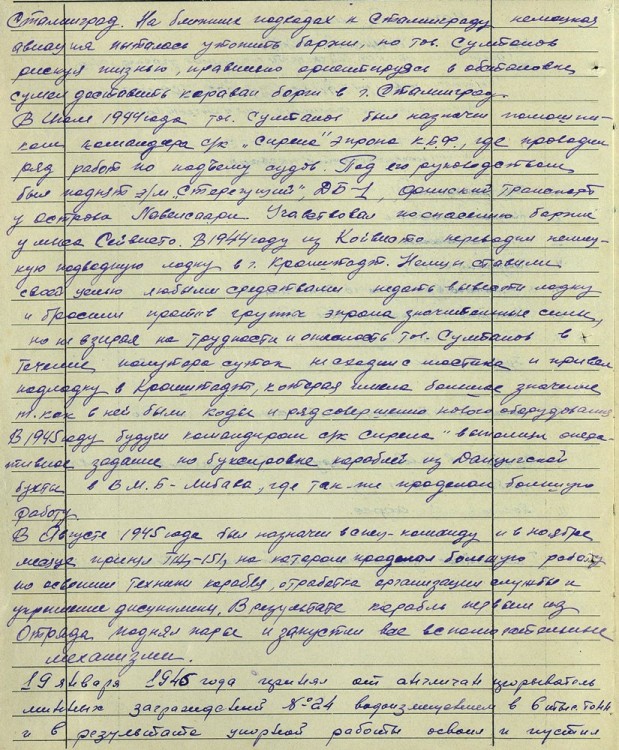 Сталинград. На ближних подходах к Сталинграду немецкая
авиация пыталась утопить баржи, но тов. Султанов
рискуя жизнью, правильно ориентируясь в обстановке
сумел доставить караван барж в г. Сталинград.
В Июле 1944 года тов. Султанов был назначен помощни-
ком командера с/к "Сирена" Эпрона К.Б.Ф., где проводил
ряд работ по подъему судов. Под его руководством
был поднят э/м "Стерегущий", ДБ-1, финский транспорт
у острова Лавенсаари. Участвовал по спасению баржи
у мыса Сейвисто. В 1944 году из Койвисто переводил немец-
кую подводную лодку в г. Кронштадт. Немцы ставили
своей целью любыми средствами не дать вывести лодку
и бросили против группы эпрона значительные силы,
но не взирая на трудности и опасность тов. Султанов в
течение полутора суток не сходил с мостика и привел
подлодку в Кронштадт, которая имела большое значение
т.как в ней были коды и ряд совершенно нового оборудования
В 1945 году будучи командиром с/к Сирена" выполнил опера-
тивное задание по буксировке кораблей из Данцигской
бухты в В.М.Б - Либава, где так-же проделал большую
работу.
В Августе 1945 года был назначен в спец-команду и в ноябре
месяце принял ТЩ-151, на котором проделал большую работу
по освоению техники корабля, отработка организации службы и
укрепление дисциплины. В результате корабль первым из
Отряда поднял пары и запустил все вспомогательные
механизмы.
19 января 1946 года принял от англичан прорыватель
минных заграждений № 24 водоизмещением в 6 тыс. тонн
и в результате упорной работы освоил и пустил